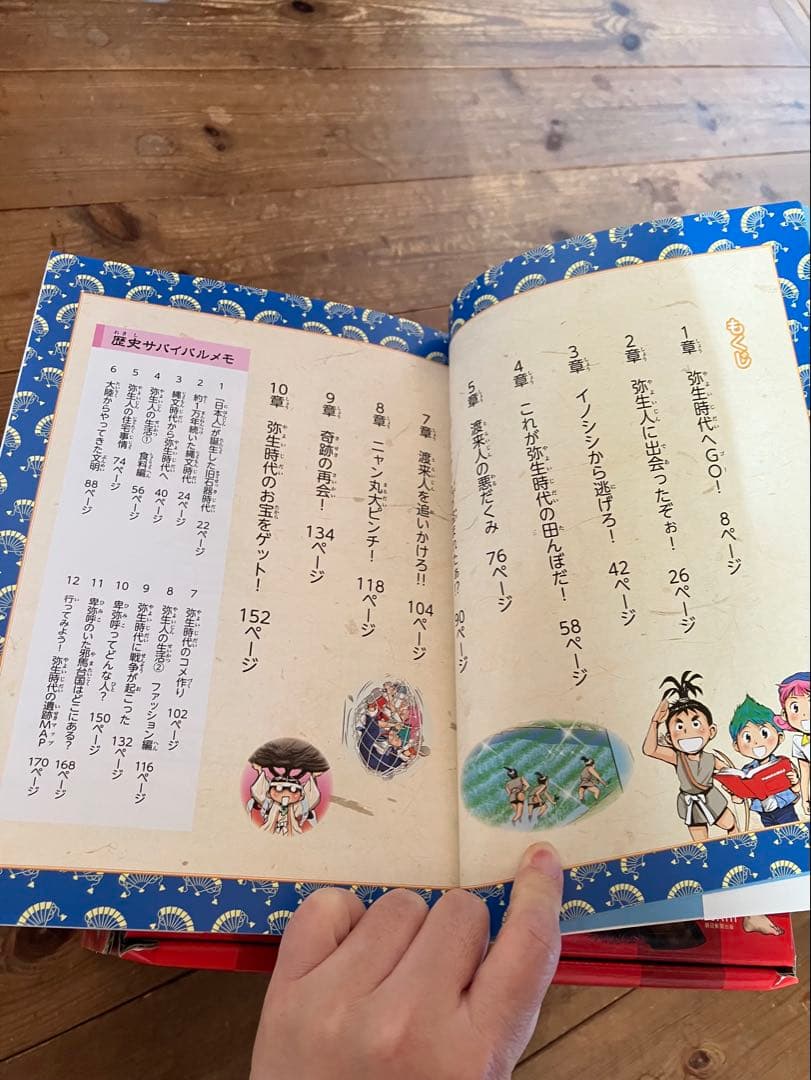 もくじ
1章 弥生時代へGO! 8ページ
2章 弥生人に出会ったぞぉ! 26ページ
3章 イノシシから逃げろ! 42ページ
4章 これが弥生時代の田んぼだ! 58ページ
5章 渡来人の悪だくみ 76ページ
90ページ
7章 渡来人を追いかけろ!! 104ページ
8章 ニャン丸大ピンチ! 118ページ
9章 奇跡の再会! 134ページ
10章 弥生時代のお宝をゲット! 152ページ
歴史サバイバルメモ
1 「日本人」が誕生した旧石器時代 22ページ
2 約1万年続いた縄文時代 24ページ
3 縄文時代から弥生時代へ 40ページ
4 弥生人の生活① 食料編 56ページ
5 弥生人の住宅事情 74ページ
6 大陸からやってきた文明 88ページ
7 弥生時代のコメ作り 102ページ
8 弥生人の生活② ファッション編 116ページ
9 弥生時代に戦争が起こった 132ページ
10 卑弥呼ってどんな人? 150ページ
11 卑弥呼のいた邪馬台国はどこにある? 168ページ
12 行ってみよう! 弥生時代の遺跡MAP 170ページ
朝日新聞出版